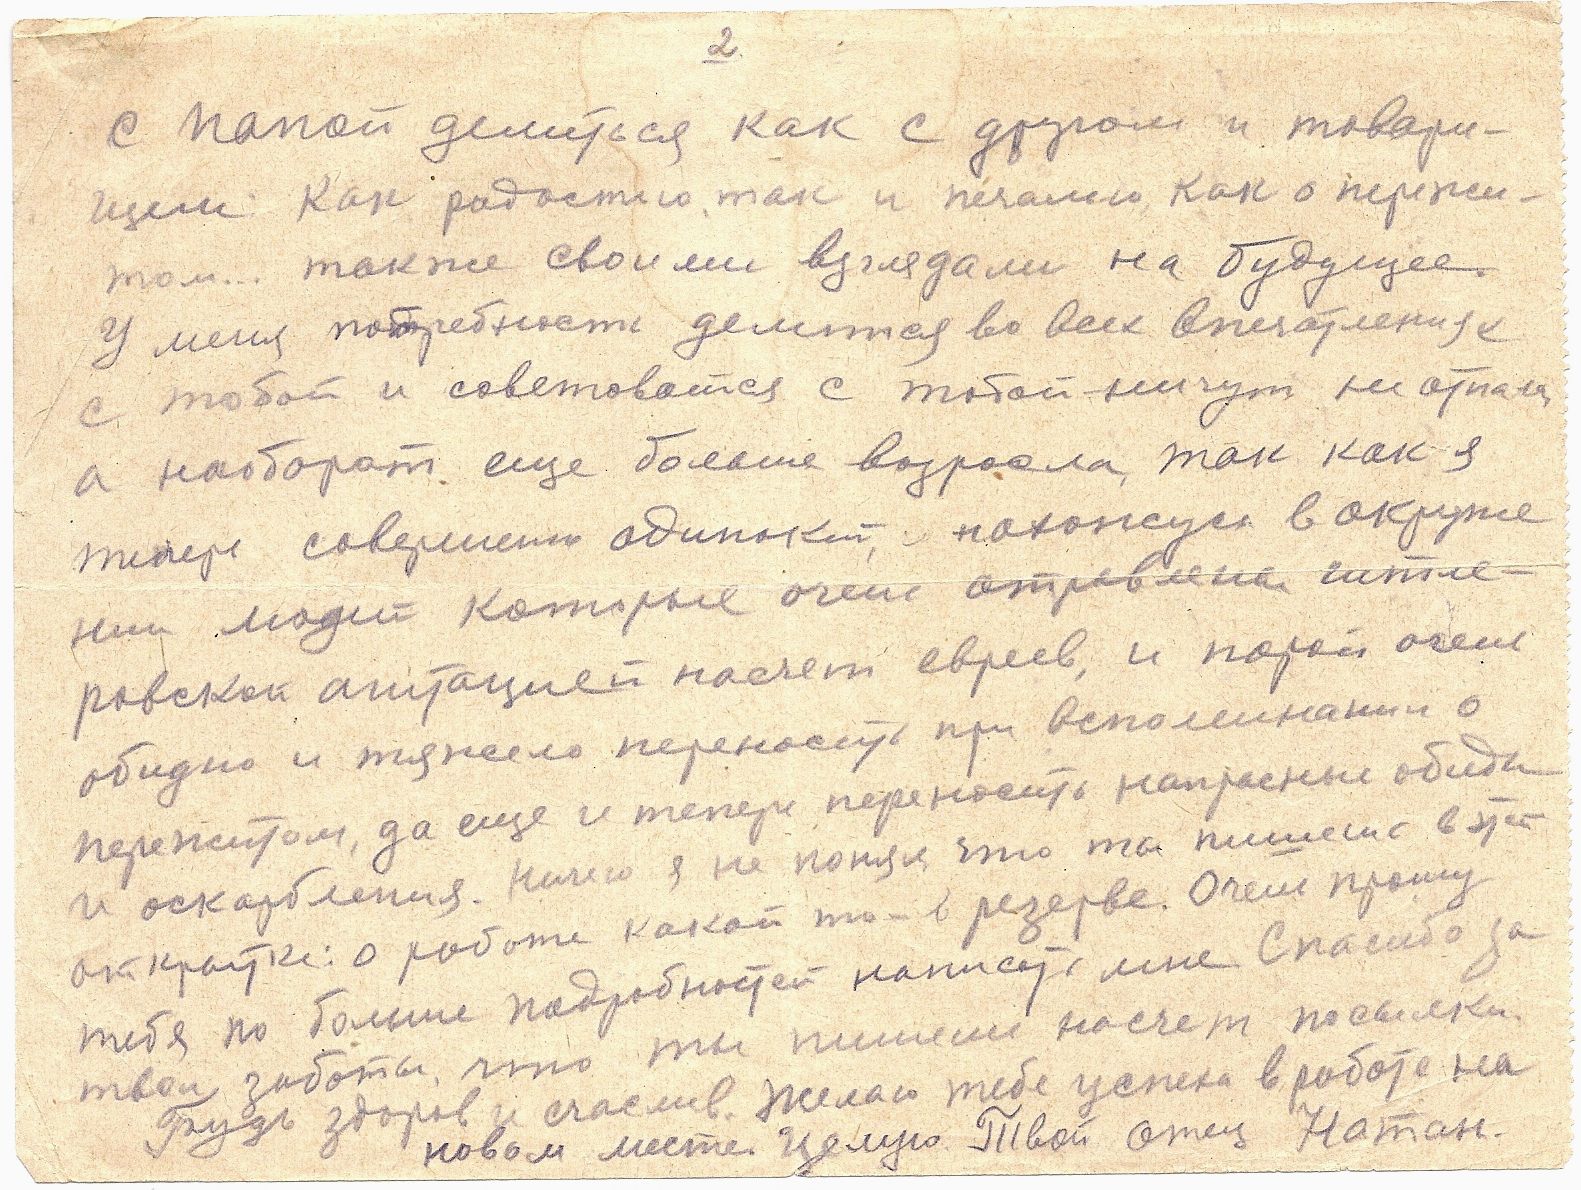 2
с папой делиться как с другом и товари-
щем. Как радостью, так и печалью, как о пережи-
том... также своими взглядами на будущее.
У меня потребность делится во всех впечатлениях
с тобой и советоватся с тобой ничут не отпала,
а наоборот еще больше возросла, так как я
теперь совершенно одинокий, нахожусь в окруже
нии людей которые очень отравлены гитле-
ровской агитацией насчет евреев, и порой очень
обидно и тяжело переносить при вспоминании о
пережитом, да еще и теперь переносить напрасные обиды
и оскарбления. Ничего я не понял что ты пишешь в этой
открытке: о работе какой то в резерве. Очень прошу
тебя по больше подробностей написать мне. Спасибо за
твои заботы, что ты пишеш насчет посылки.
Будь здоров и счаслив. Желаю тебе успеха в работе на
новом месте. Целую. Твой отец Натан.